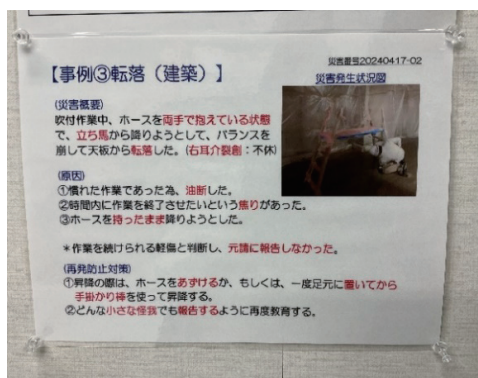 災害番号20240417-02
【事例③転落（建築）】
災害発生状況図
(災害概要)
吹付作業中、ホースを両手で抱えている状態
で、立ち馬から降りようとして、バランスを
崩して天板から転落した。（右耳介裂創：不休）
(原因)
①慣れた作業であった為、油断した。
②時間内に作業を終了させたいという焦りがあった。
③ホースを持ったまま降りようとした。
＊作業を続けられる軽傷と判断し、元請に報告しなかった。
(再発防止対策)
①昇降の際は、ホースをあずけるか、もしくは、一度足元に置いてから
手掛かり棒を使って昇降する。
②どんな小さな怪我でも報告するように再度教育する。